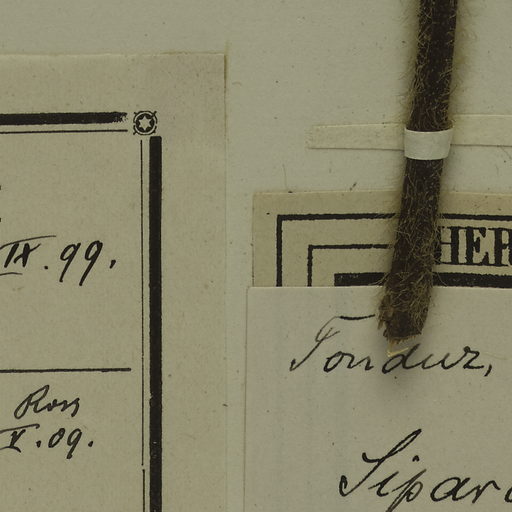 IX.99.
Ross
V.09.
HER
Tonduz,
Sipar